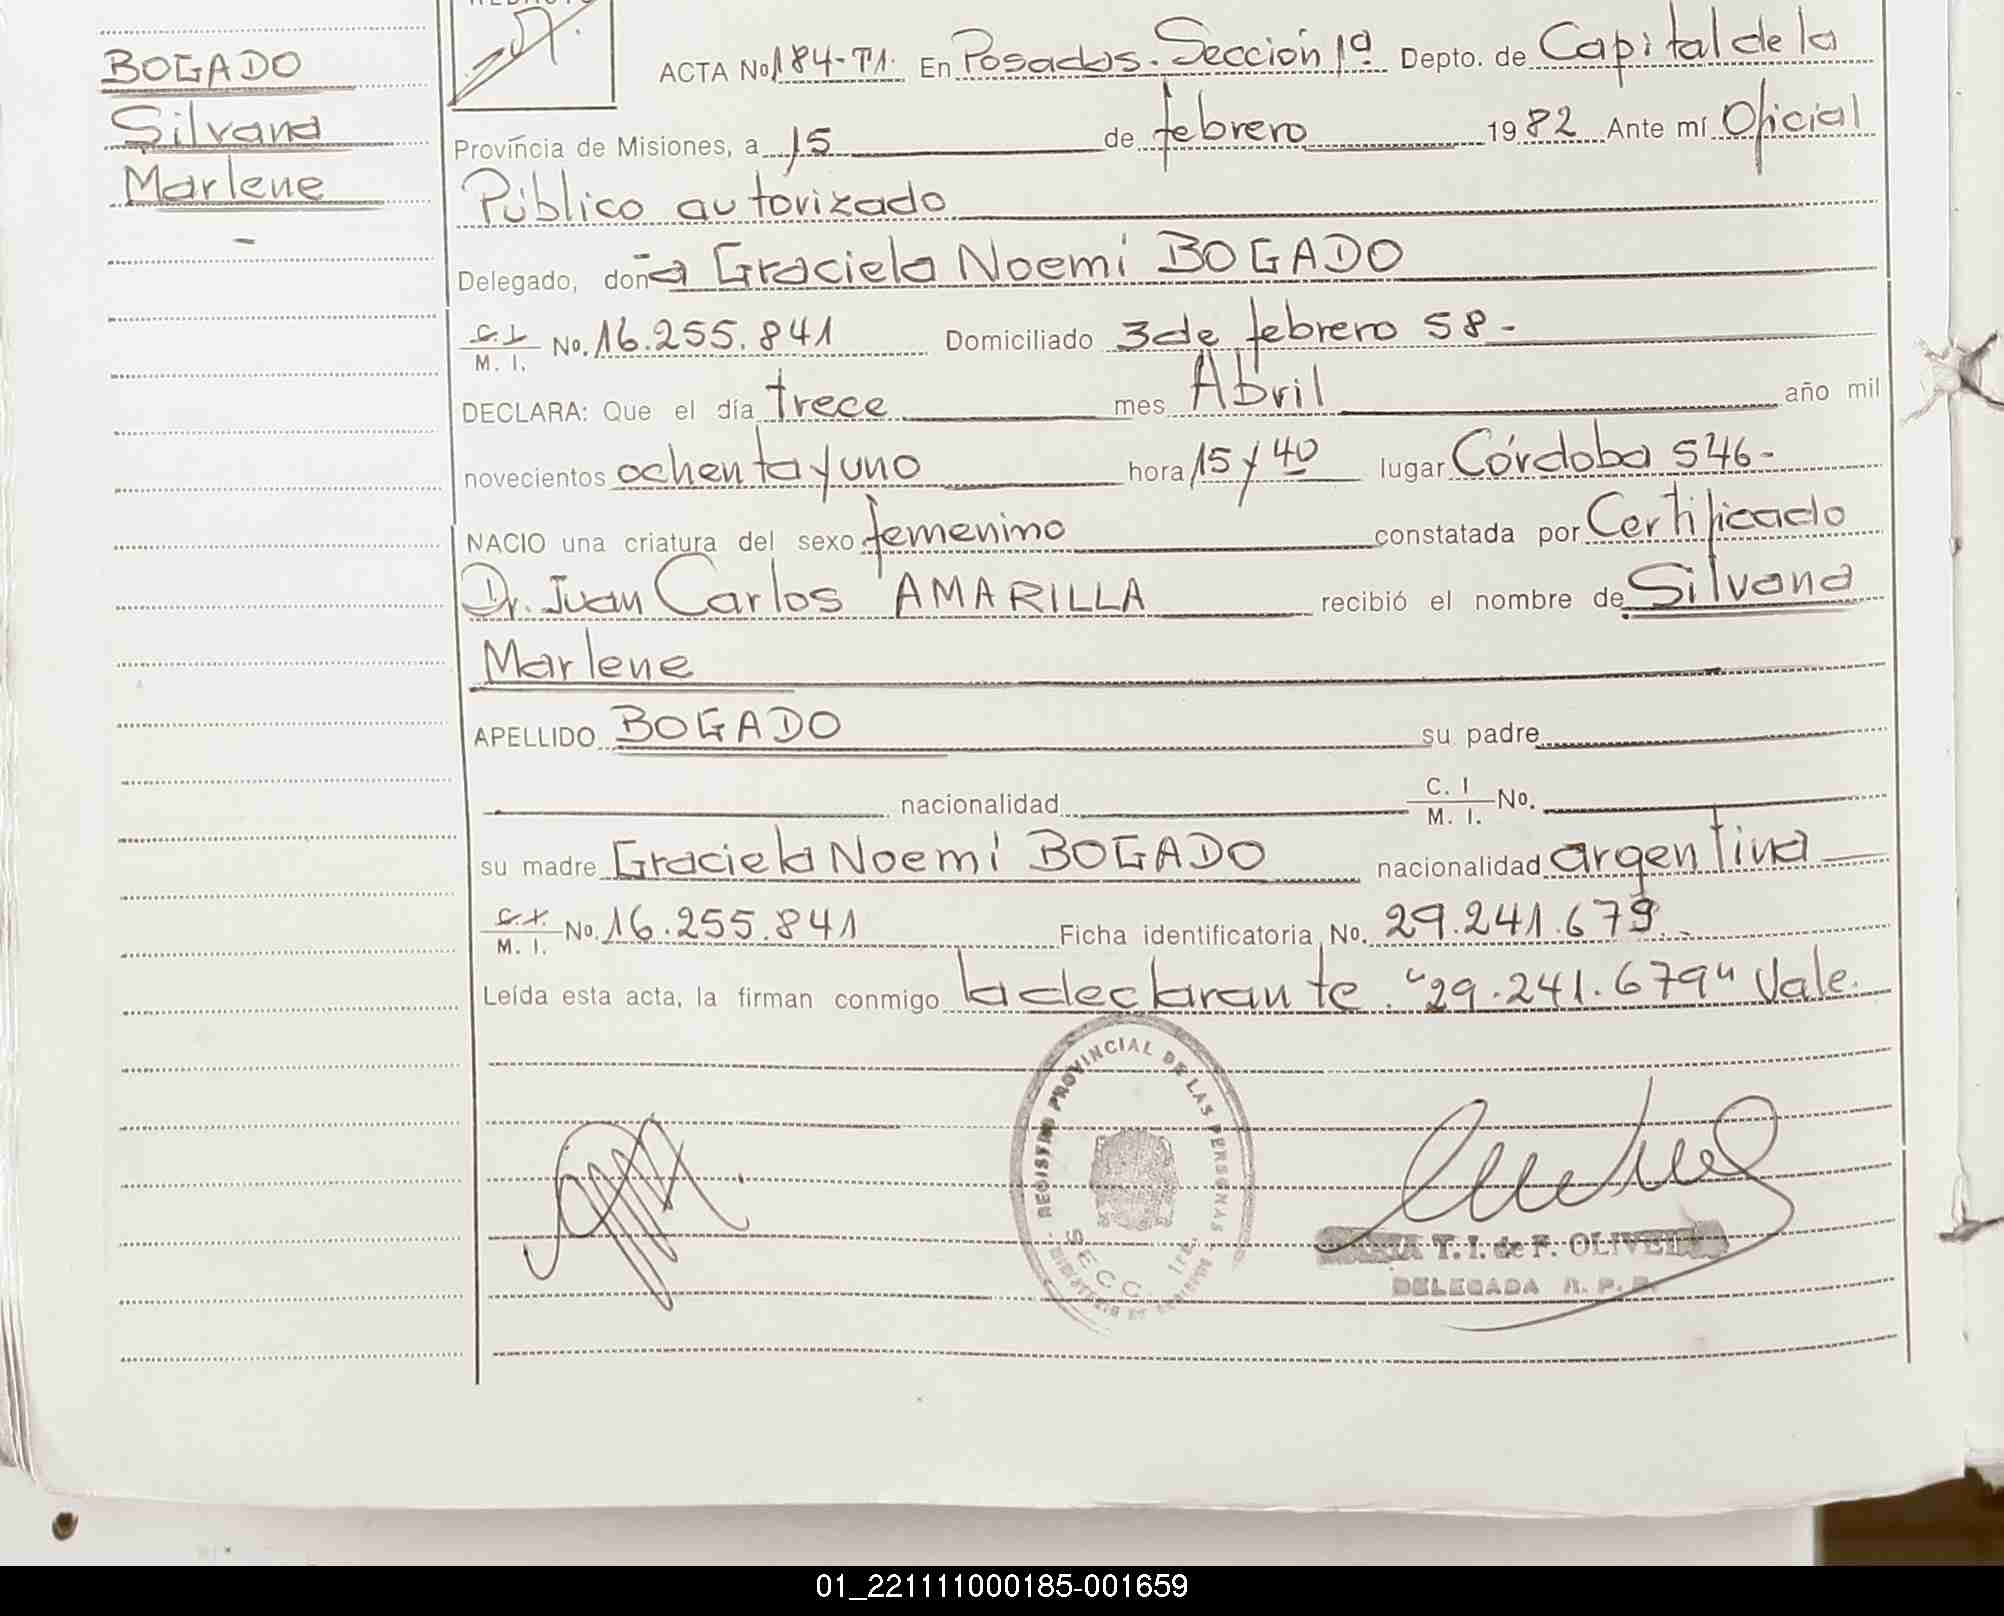 BOGADO
Silvana
Marlene
ACTA No 184-T1. En Posadas. Sección 1ª Depto. de Capital de la
Província de Misiones, a 15 de febrero 1982 Ante mí Oficial
Público autorizado
Delegado, doña Graciela Noemí BOGADO
C.I. M. I. No. 16.255.841 Domiciliado 3 de febrero 58-
DECLARA: Que el día trece mes Abril año mil
novecientos ochenta y uno hora 15 y 40 lugar Córdoba 546-
NACIO una criatura del sexo femenino constatada por Certificado
Dr. Juan Carlos AMARILLA recibió el nombre de Silvana
Marlene
APELLIDO BOGADO su padre
nacionalidad C. I M. I. No.
su madre Graciela Noemí BOGADO nacionalidad argentina
C.I. M. I. No. 16.255.841 Ficha identificatoria No. 29.241.679.
Leída esta acta, la firman conmigo la declarante. "29.241.679" Vale.
REGISTRO PROVINCIAL DE LAS PERSONAS
SECC. 1ra.
T. I. de F. OLIVEI
DELEGADA R. P. P.
01_221111000185-001659